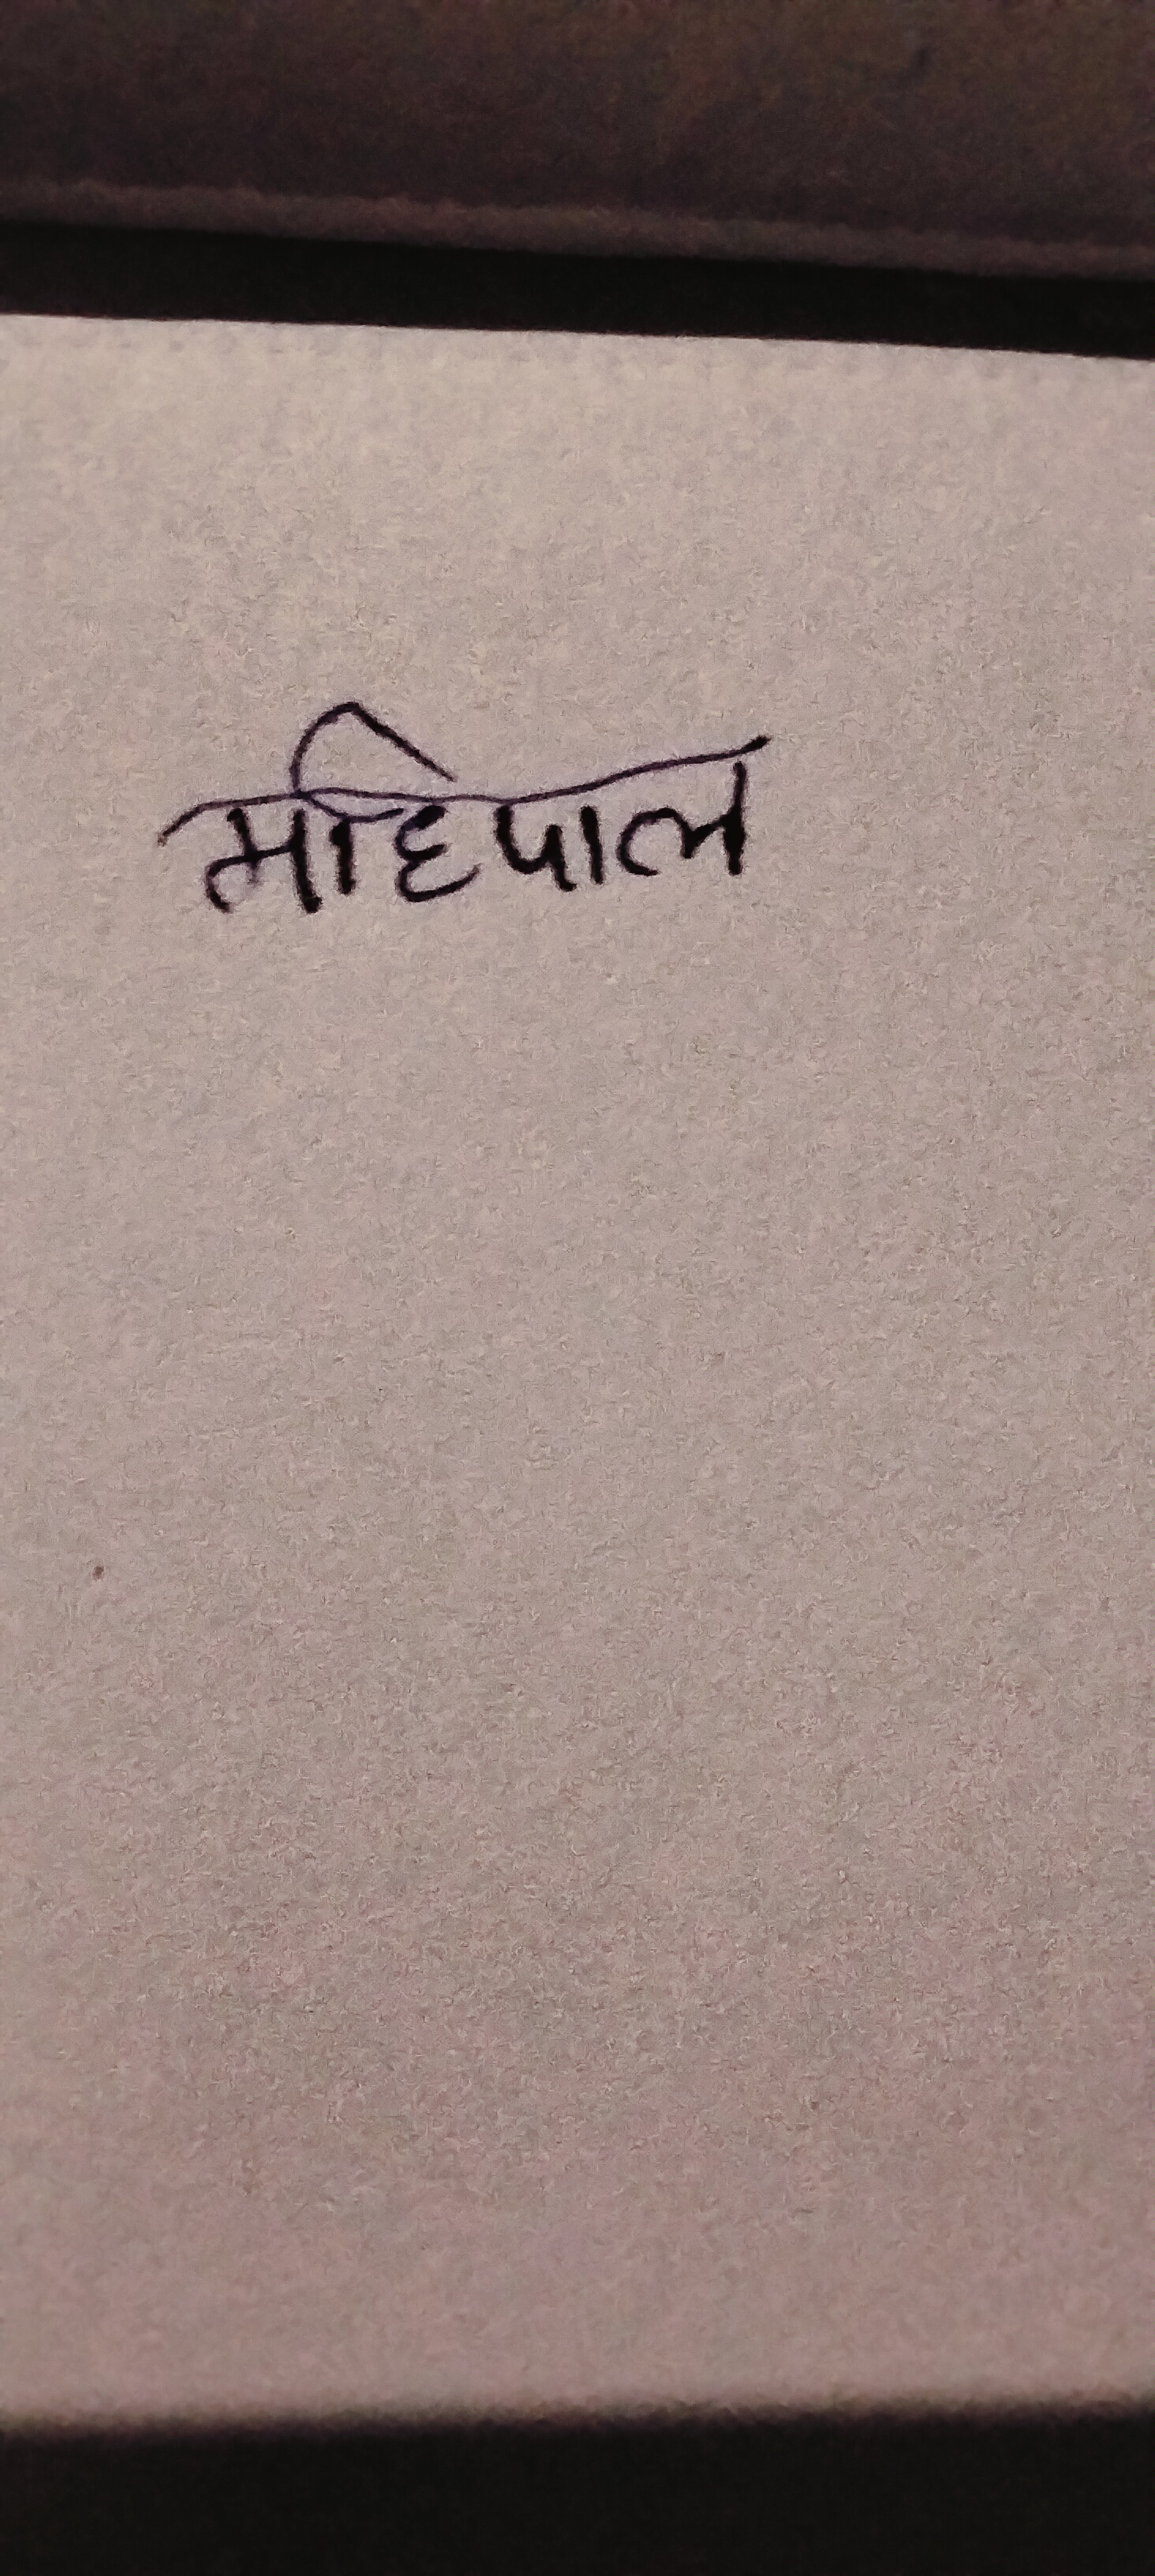 महिपाल